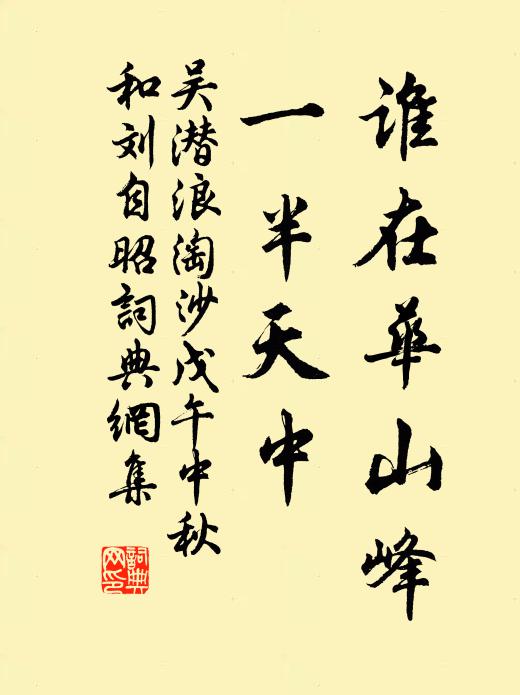 谁在華山峰
一半天中
吴潜浪淘沙戊午中秋
和刘自昭詞典網集
詞典
网印